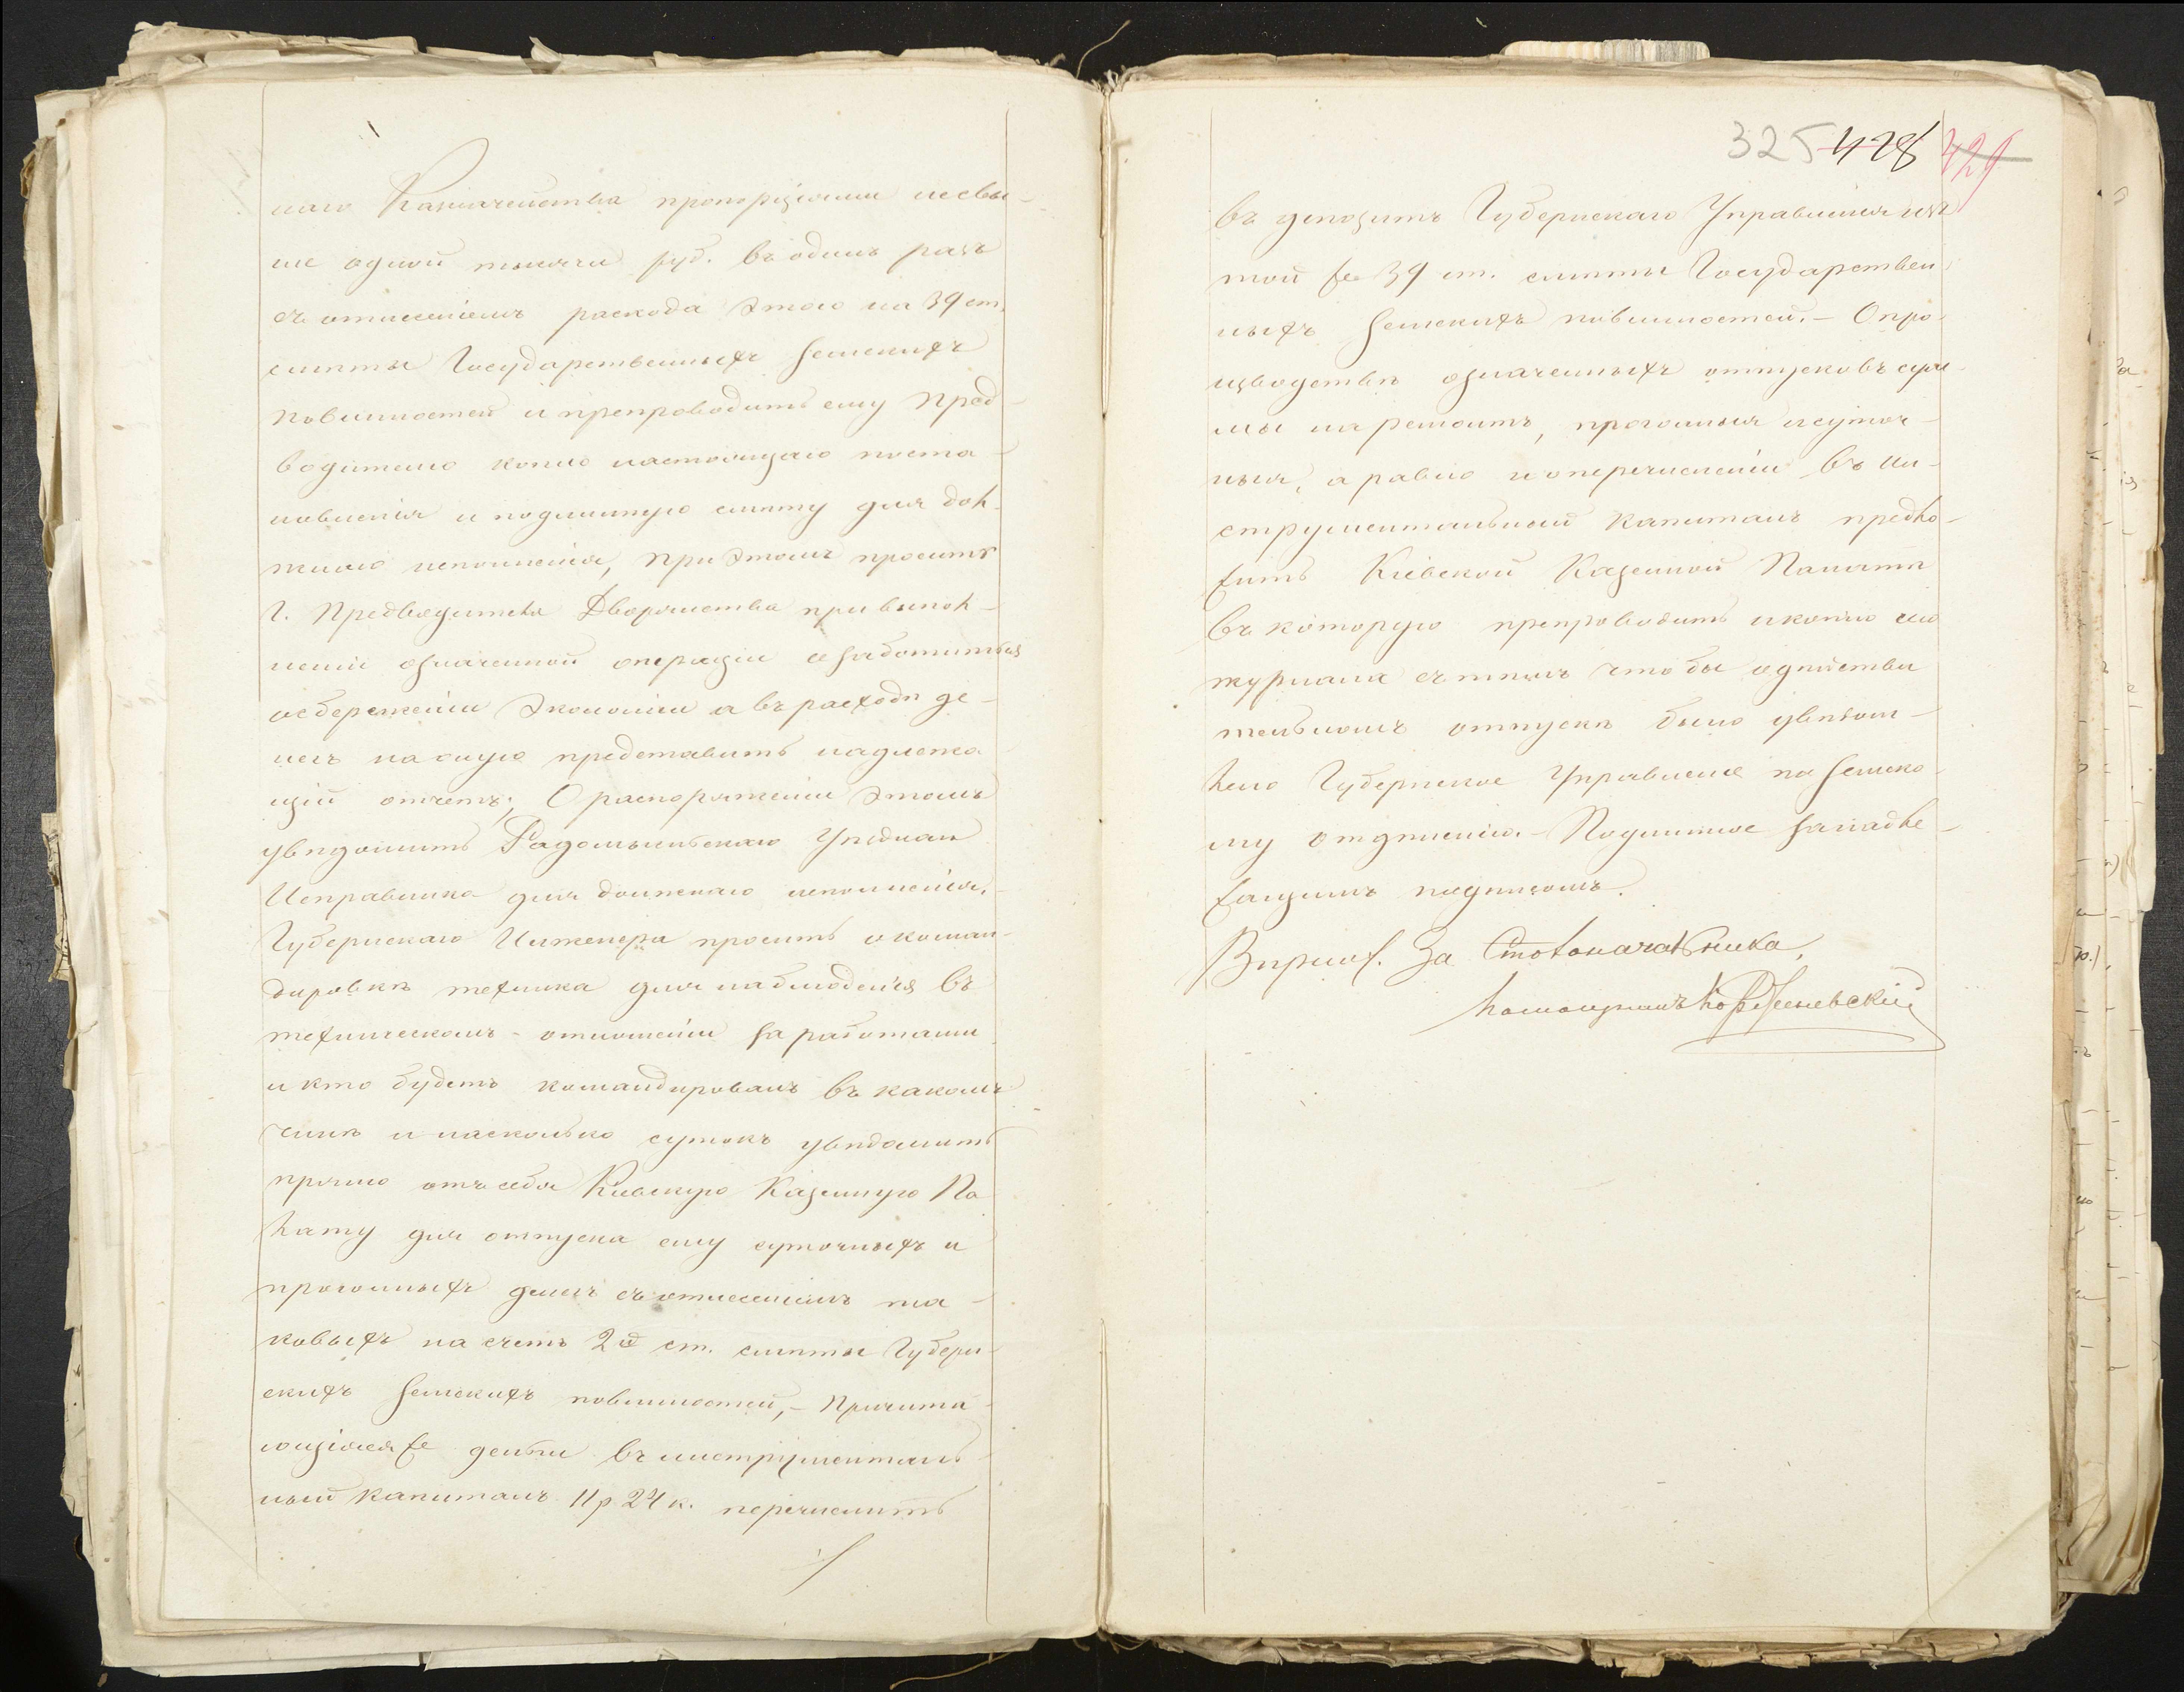 наго Казначейства пропорціями несвы-
ше одной тысячи руб. въ одинъ разъ
съ отнесеніемъ расхода этого на 39 ст.
смѣты Государственныхъ Земскихъ
повинностей и препроводить ему Пред-
водителю копію настоящаго поста-
новленія и подлинную смѣту для дол-
жнаго исполненія, при этомъ просить
Г. Предводителя Дворянства при выпол-
неніи означенной операціи озаботиться
осбереженіи Экономіи а въ расходѣ де-
негъ на оную представить надлежа-
щій отчетъ; О распоряженіи этомъ
увѣдомить Радомысльскаго Уѣзднаго
Исправника для должнаго исполненія,
Губернскаго Инженера просить о коман-
дировкѣ техника для наблюденія въ
техническомъ - отношеніи за работами
и кто будетъ командированъ въ какомъ
чинѣ и насколько сутокъ увѣдомить
прямо отъ себя Кіевскую Казенную Па
лату для отпуска ему суточныхъ и
прогонныхъ денегъ съ отнесеніемъ та-
ковыхъ на счетъ 2й ст. смѣты Губерн-
скихъ Земскихъ повинностей, - Причита
ющіяся же деньги въ инструменталь-
ный капиталъ 11 р 24 к. перечислить
325 428 429
въ депозитъ Губернскаго Управленія изъ
той же 39 ст. смѣты Государствен
ныхъ Земскихъ повинностей. - О про-
изводствѣ означенныхъ отпусковъ сум-
мы на ремонтъ, прогонныя и суточ-
ныя, а равно и о перечисленіи въ ин-
струментальный капиталъ предло-
жить Кіевской Казенной Палатѣ
въ которую препроводить и копію сего
журнала съ тѣмъ чтобы о дѣйстви
тельномъ отпускѣ было увѣдом-
лено Губернское Управленіе по Земско-
му отдѣленію. - Подлинное за надле-
жащимъ подписомъ.
Вѣрно. За Столоначальника,
помощникъ